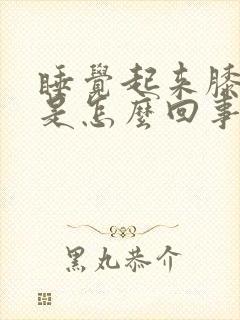 睡覺起來膝
是怎麼回事
黑丸恭介